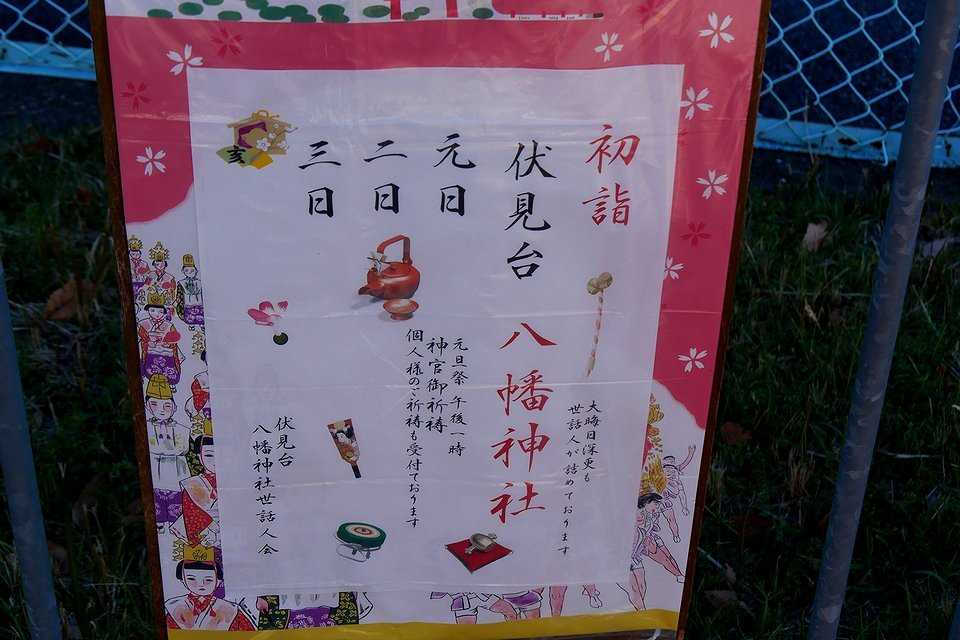 初詣
大晦日深更も
世話人が詰めております
伏見台 八幡神社
元日
元旦祭 午後一時
神官御祈祷
個人様のご祈祷も受付ております
二日
三日
亥
伏見台
八幡神社世話人会